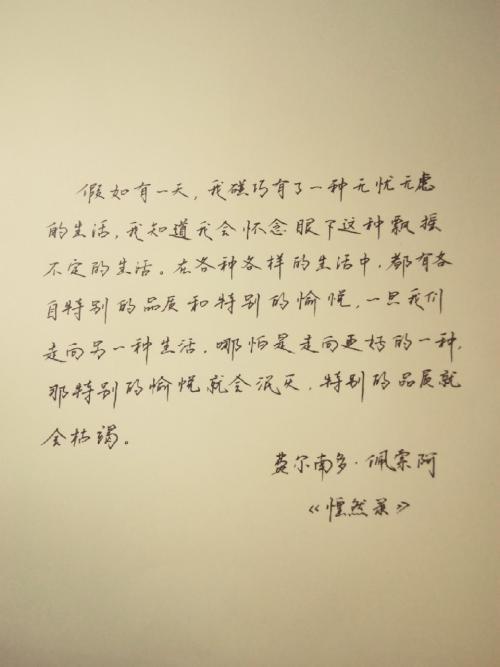 假如有一天，我碰巧有了一种无忧无虑
的生活，我知道我会怀念眼下这种飘摇
不定的生活。在各种各样的生活中，都有各
自特别的品质和特别的愉悦，一旦我们
走向另一种生活，哪怕是走向更好的一种，
那特别的愉悦就会泯灭，特别的品质就
会枯竭。
费尔南多·佩索阿
《惶然录》